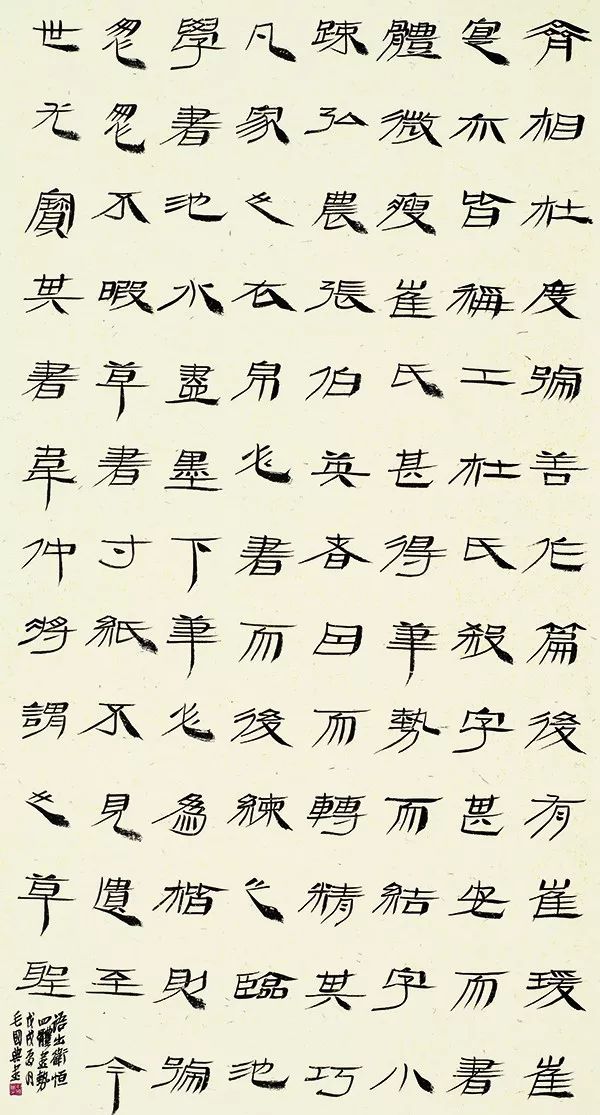 齊相杜度號善作篇後有崔瑗崔
寔亦皆稱工杜氏殺字甚安而書
體微瘦崔氏甚得筆勢而結字小
疎弘農張伯英者因而轉精其巧
凡家之衣帛必書而後練之臨池
學書池水盡墨下筆必爲楷則號
怱怱不暇草書寸紙不見遺至今
世尤寶其書韋仲將謂之草聖
語出衛恒
四體書勢
戊戌夏月
毛國典書